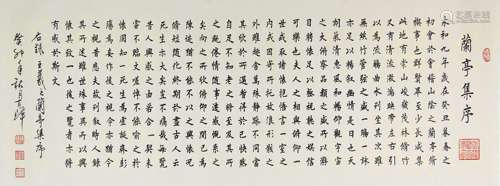 蘭亭集序
永和九年歲在癸丑暮春之
初會於會稽山陰之蘭亭脩
禊事也群賢畢至少長咸集
此地有崇山峻嶺茂林脩竹
又有清流激湍映帶左右引
以為流觴曲水列坐其次雖
無絲竹管弦之盛一觴一詠
亦足以暢敘幽情是日也天
朗氣清惠風和暢仰觀宇宙
之大俯察品類之盛所以遊
目騁懷足以極視聽之娛信
可樂也夫人之相與俯仰一
世或取諸懷抱悟言一室之
內或因寄所託放浪形骸之
外雖趣舍萬殊靜躁不同當
其欣於所遇暫得於己快然
自足不知老之將至及其所
之既倦情隨事遷感慨係之
矣向之所欣俯仰之間已為
陳跡猶不能不以之興懷況
脩短隨化終期於盡古人云
死生亦大矣豈不痛哉每覽
昔人興感之由若合一契未
嘗不臨文嗟悼不能喻之於
懷固知一死生為虛誕齊彭
殤為妄作後之視今亦猶今
之視昔悲夫故列敘時人錄
其所述雖世殊事異所以興
懷其致一也後之覽者亦將
有感於斯文
右錄王羲之蘭亭集序
年秋月